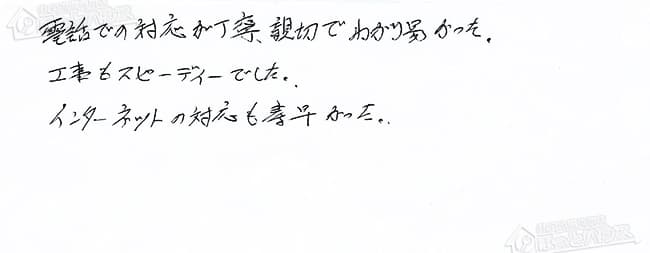 電話での対応が丁寧、親切でわかり易かった。
工事もスピーディーでした。
インターネットの対応も素早かった。